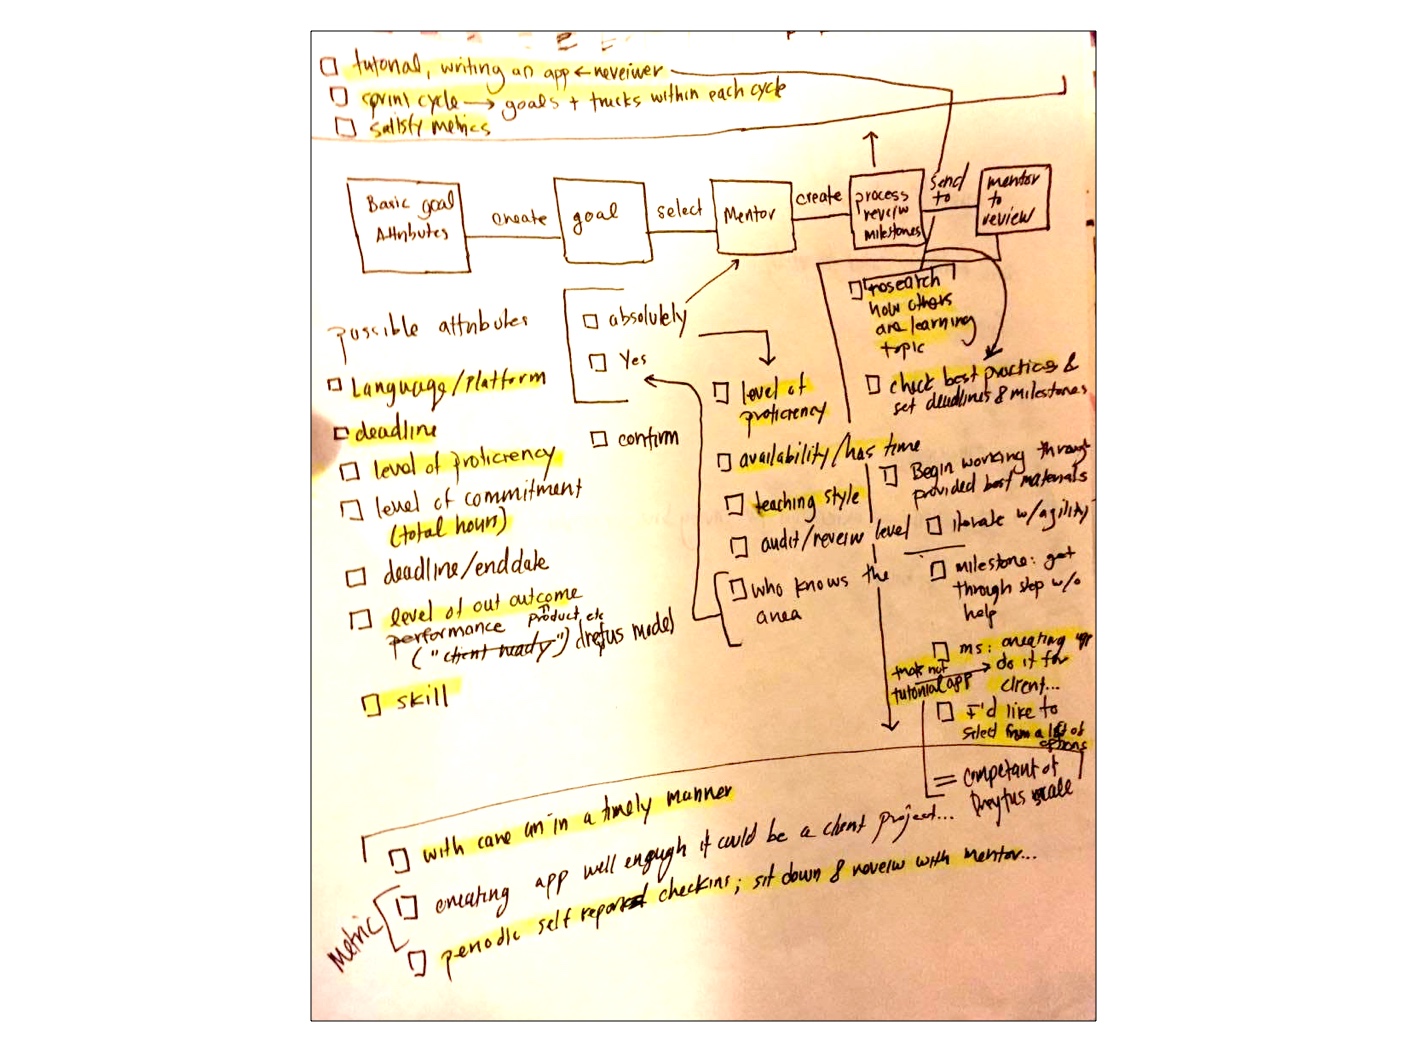 □ tutorial, writing an app ← reveiwer
□ sprint cycle → goals + tracks within each cycle
□ satisfy metrics
Basic goal
Attributes
create
goal
select
Mentor
create
process
review
milestones
send
to
mentor
to
review
possible attributes
□ Language/Platform
□ deadline
□ level of proficiency
□ level of commitment
(total hours)
□ deadline/end date
□ level of out outcome
performance product, etc
("client ready") drefus model
□ skill
□ absolutely
□ Yes
□ confirm
□ level of
proficiency
□ availability/has time
□ teaching style
□ audit/reveiw level
□ who knows the
area
□ research
how others
are learning
topic
□ check best practices &
set deadlines & milestones
□ Begin working through
provided best materials
□ iterate w/agility
□ milestone: get
through step w/o
help
□ ms: creating app
→ do it for
client...
not
tutorial app
□ I'd like to
select from a list of
options
= competant of
Dreyfus scale
□ with care an in a timely manner
Metric
□ creating app well engugh it could be a client project...
□ periodic self reported checkins; sit down & reveiw with mentor...